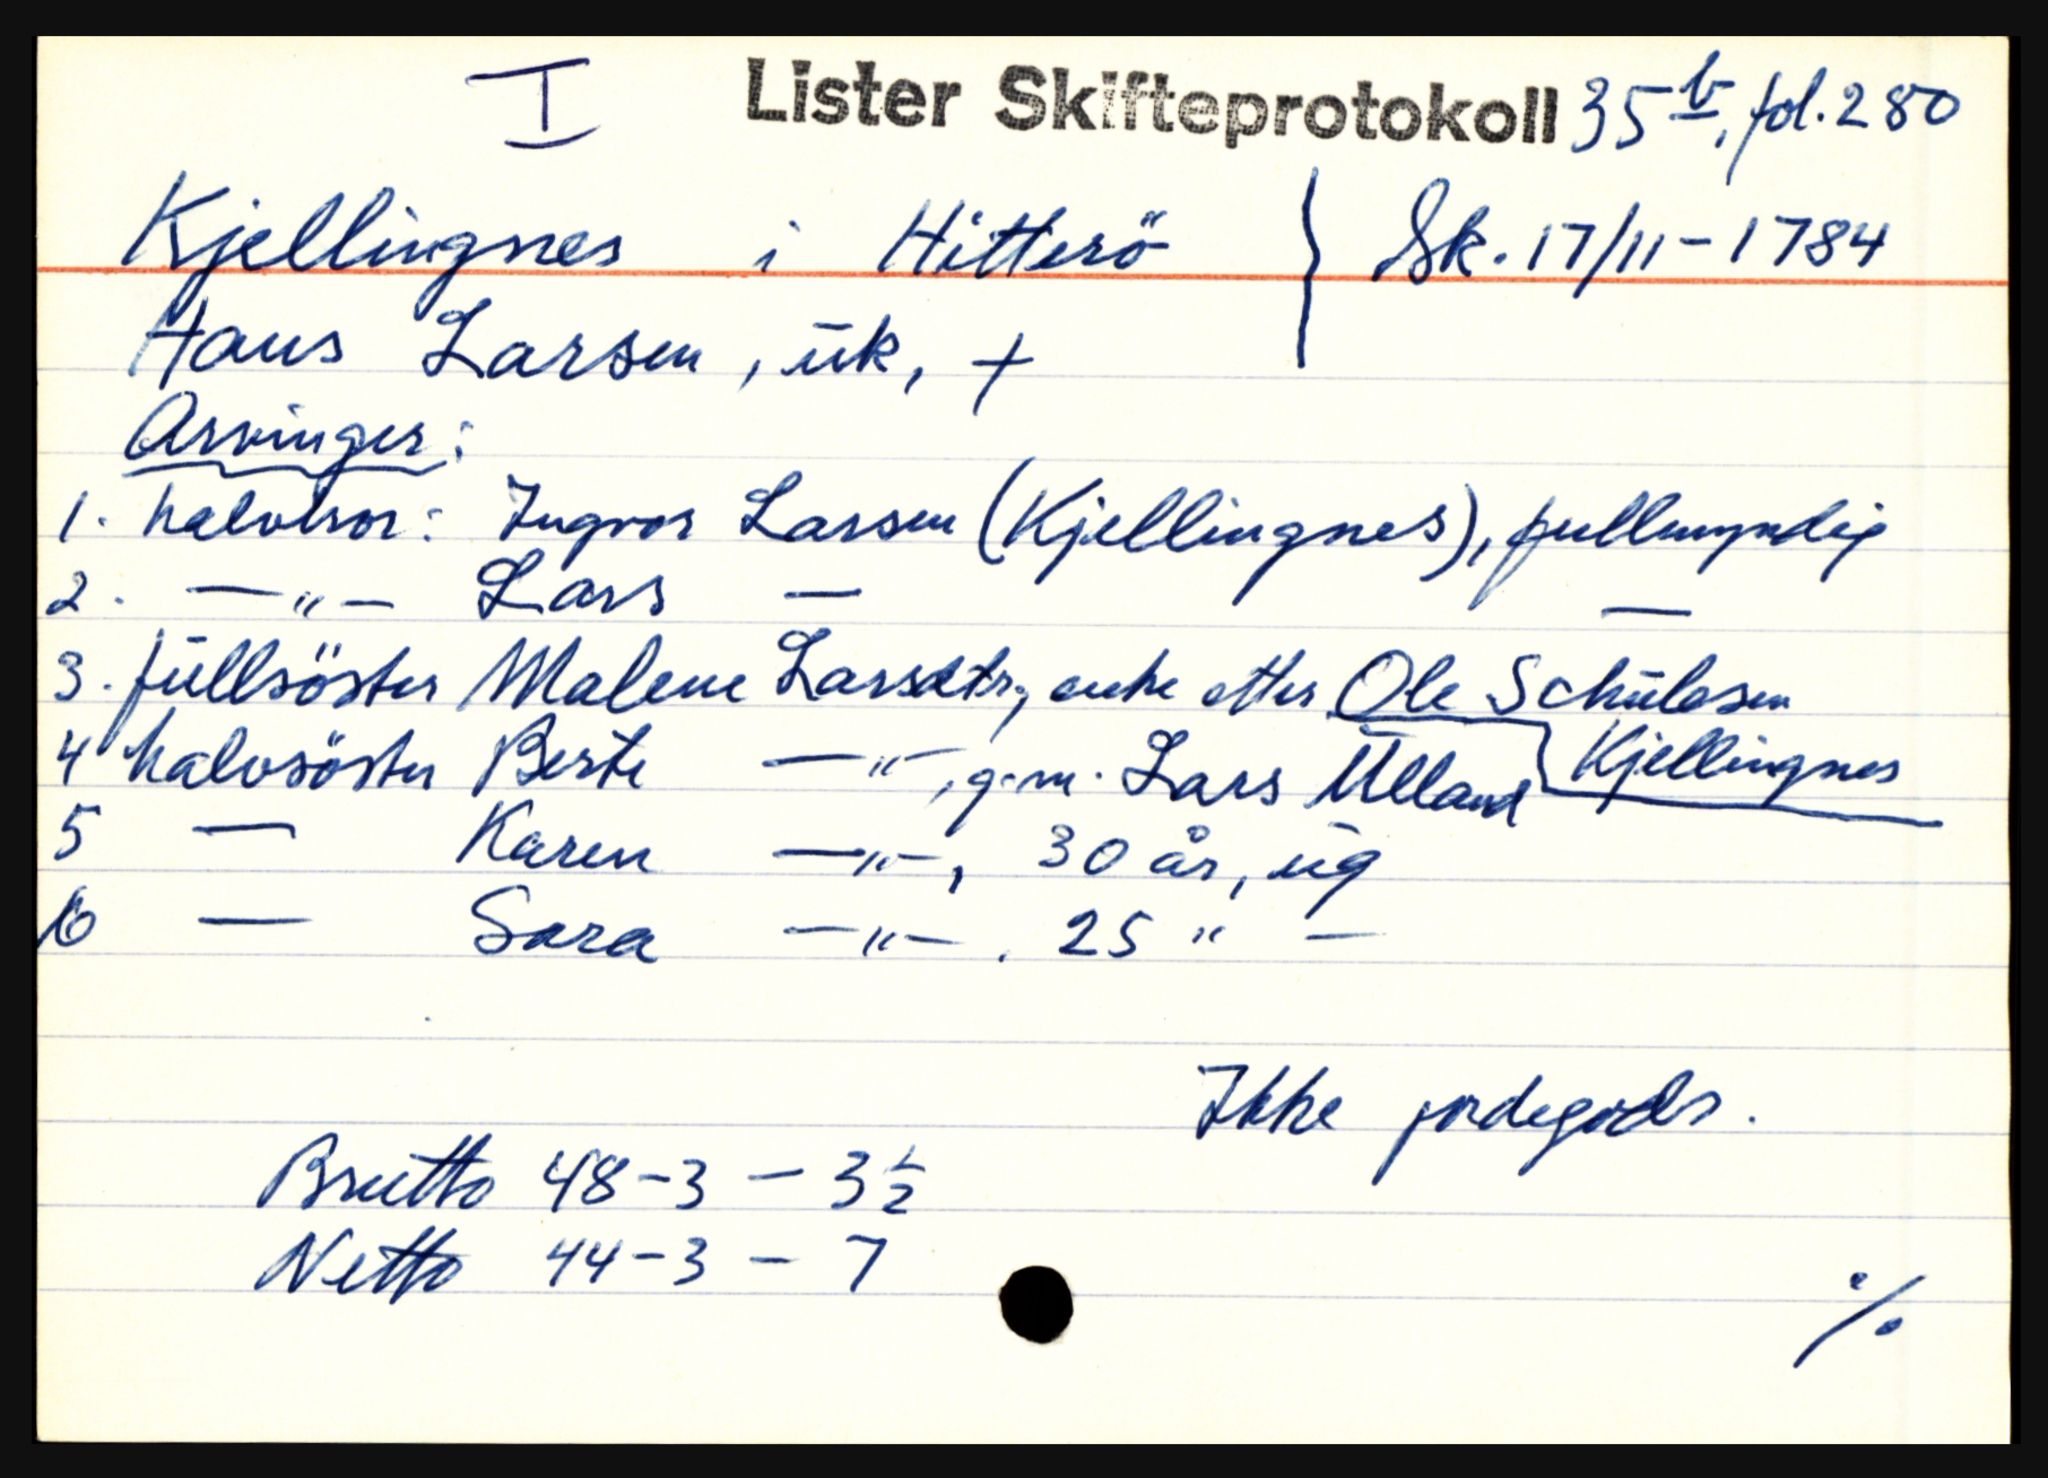 I Lister Skifteprotokoll 35 b, fol. 280
Kjellingnes i Hitterö } Sk. 17/11-1784
Hans Larsen, ūk, +
Arvinger:
1. halvbror: Ingvor Larsen (Kjellingnes), fullmyndig
2. —"— Lars — —
3. fūllsöster Malene Larsdtr, enke etter Ole Schūlesen
Kjellingnes
4 halvsöster Berte —"—, g.m. Lars Ūlland
5 — Karen —"—, 30 år, ūg
6 — Sara —"—. 25 " —
Ikke jordegods.
Brutto 48-3 - 3½
Netto 44-3 - 7
·/.